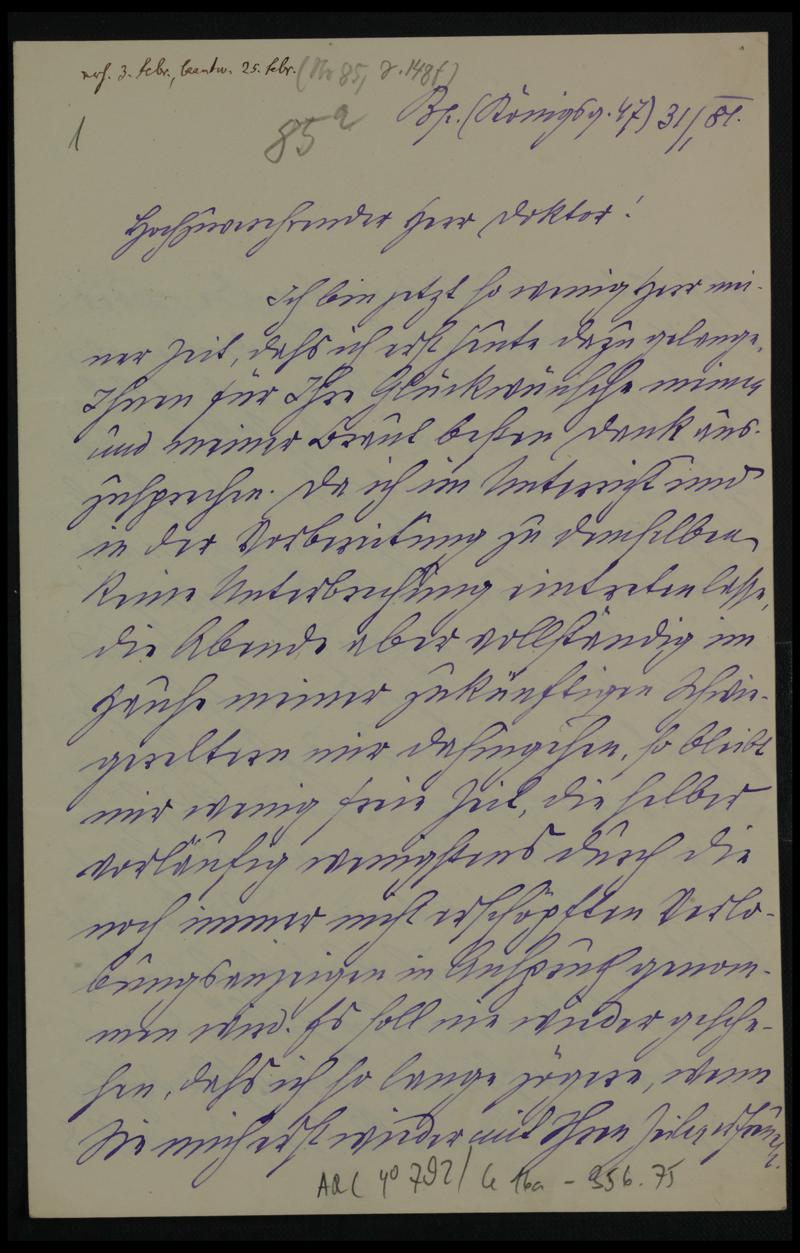 erh. 3. Febr., beantw. 25. Febr. (Nr 85, S. 148f)
1
85a
Bp. (Königsg. 47) 31/I, 81.
Hochzuverehrender Herr Doktor!
Ich bin jetzt so wenig Herr mei-
ner Zeit, dass ich erst heute dazu gelange,
Ihnen für Ihre Glückwünsche meinen
und meiner Braut besten Dank aus-
zusprechen. Da ich im Unterricht und
in der Vorbereitung zu demselben
keine Unterbrechung eintreten lasse,
die Abende aber vollständig im
Hause meiner zukünftigen Schwie-
gereltern mir dahingehen, so bleibt
mir wenig freie Zeit, die selber
vorläufig wenigstens durch die
noch immer nicht erschöpften Verlo-
bungsanzeigen in Anspruch genom-
men wird. Es soll nie wieder gesche-
hen, dass ich so lange zögere, wenn
Sie mich erst wieder mit Ihren Zeilen erfreuen.
4° 792 / 16a - 956.75